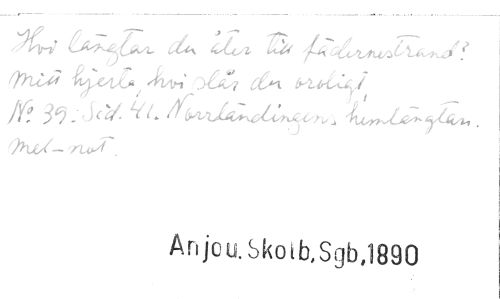 Hvi längtar du åter till fädernestrand?
mitt hjerta, hvi slår du oroligt,
No 39: Sid. 41. Norrländingens hemlängtan.
mel-not.
Anjou. Skolb, Sgb, 1890